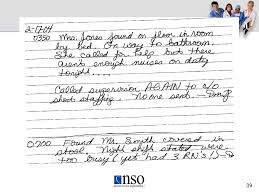 2-17-04
0350 Mrs. Jones found on floor in room
by bed. On way to bathroom.
She called for help but there
aren't enough nurses on duty
tonight....
Called supervisor AGAIN to c/o
short staffing - None sent.
0700 Found Mr. Smith covered in
stool. Night shift stated were
too busy (yet had 3 RN's!)
nso
39